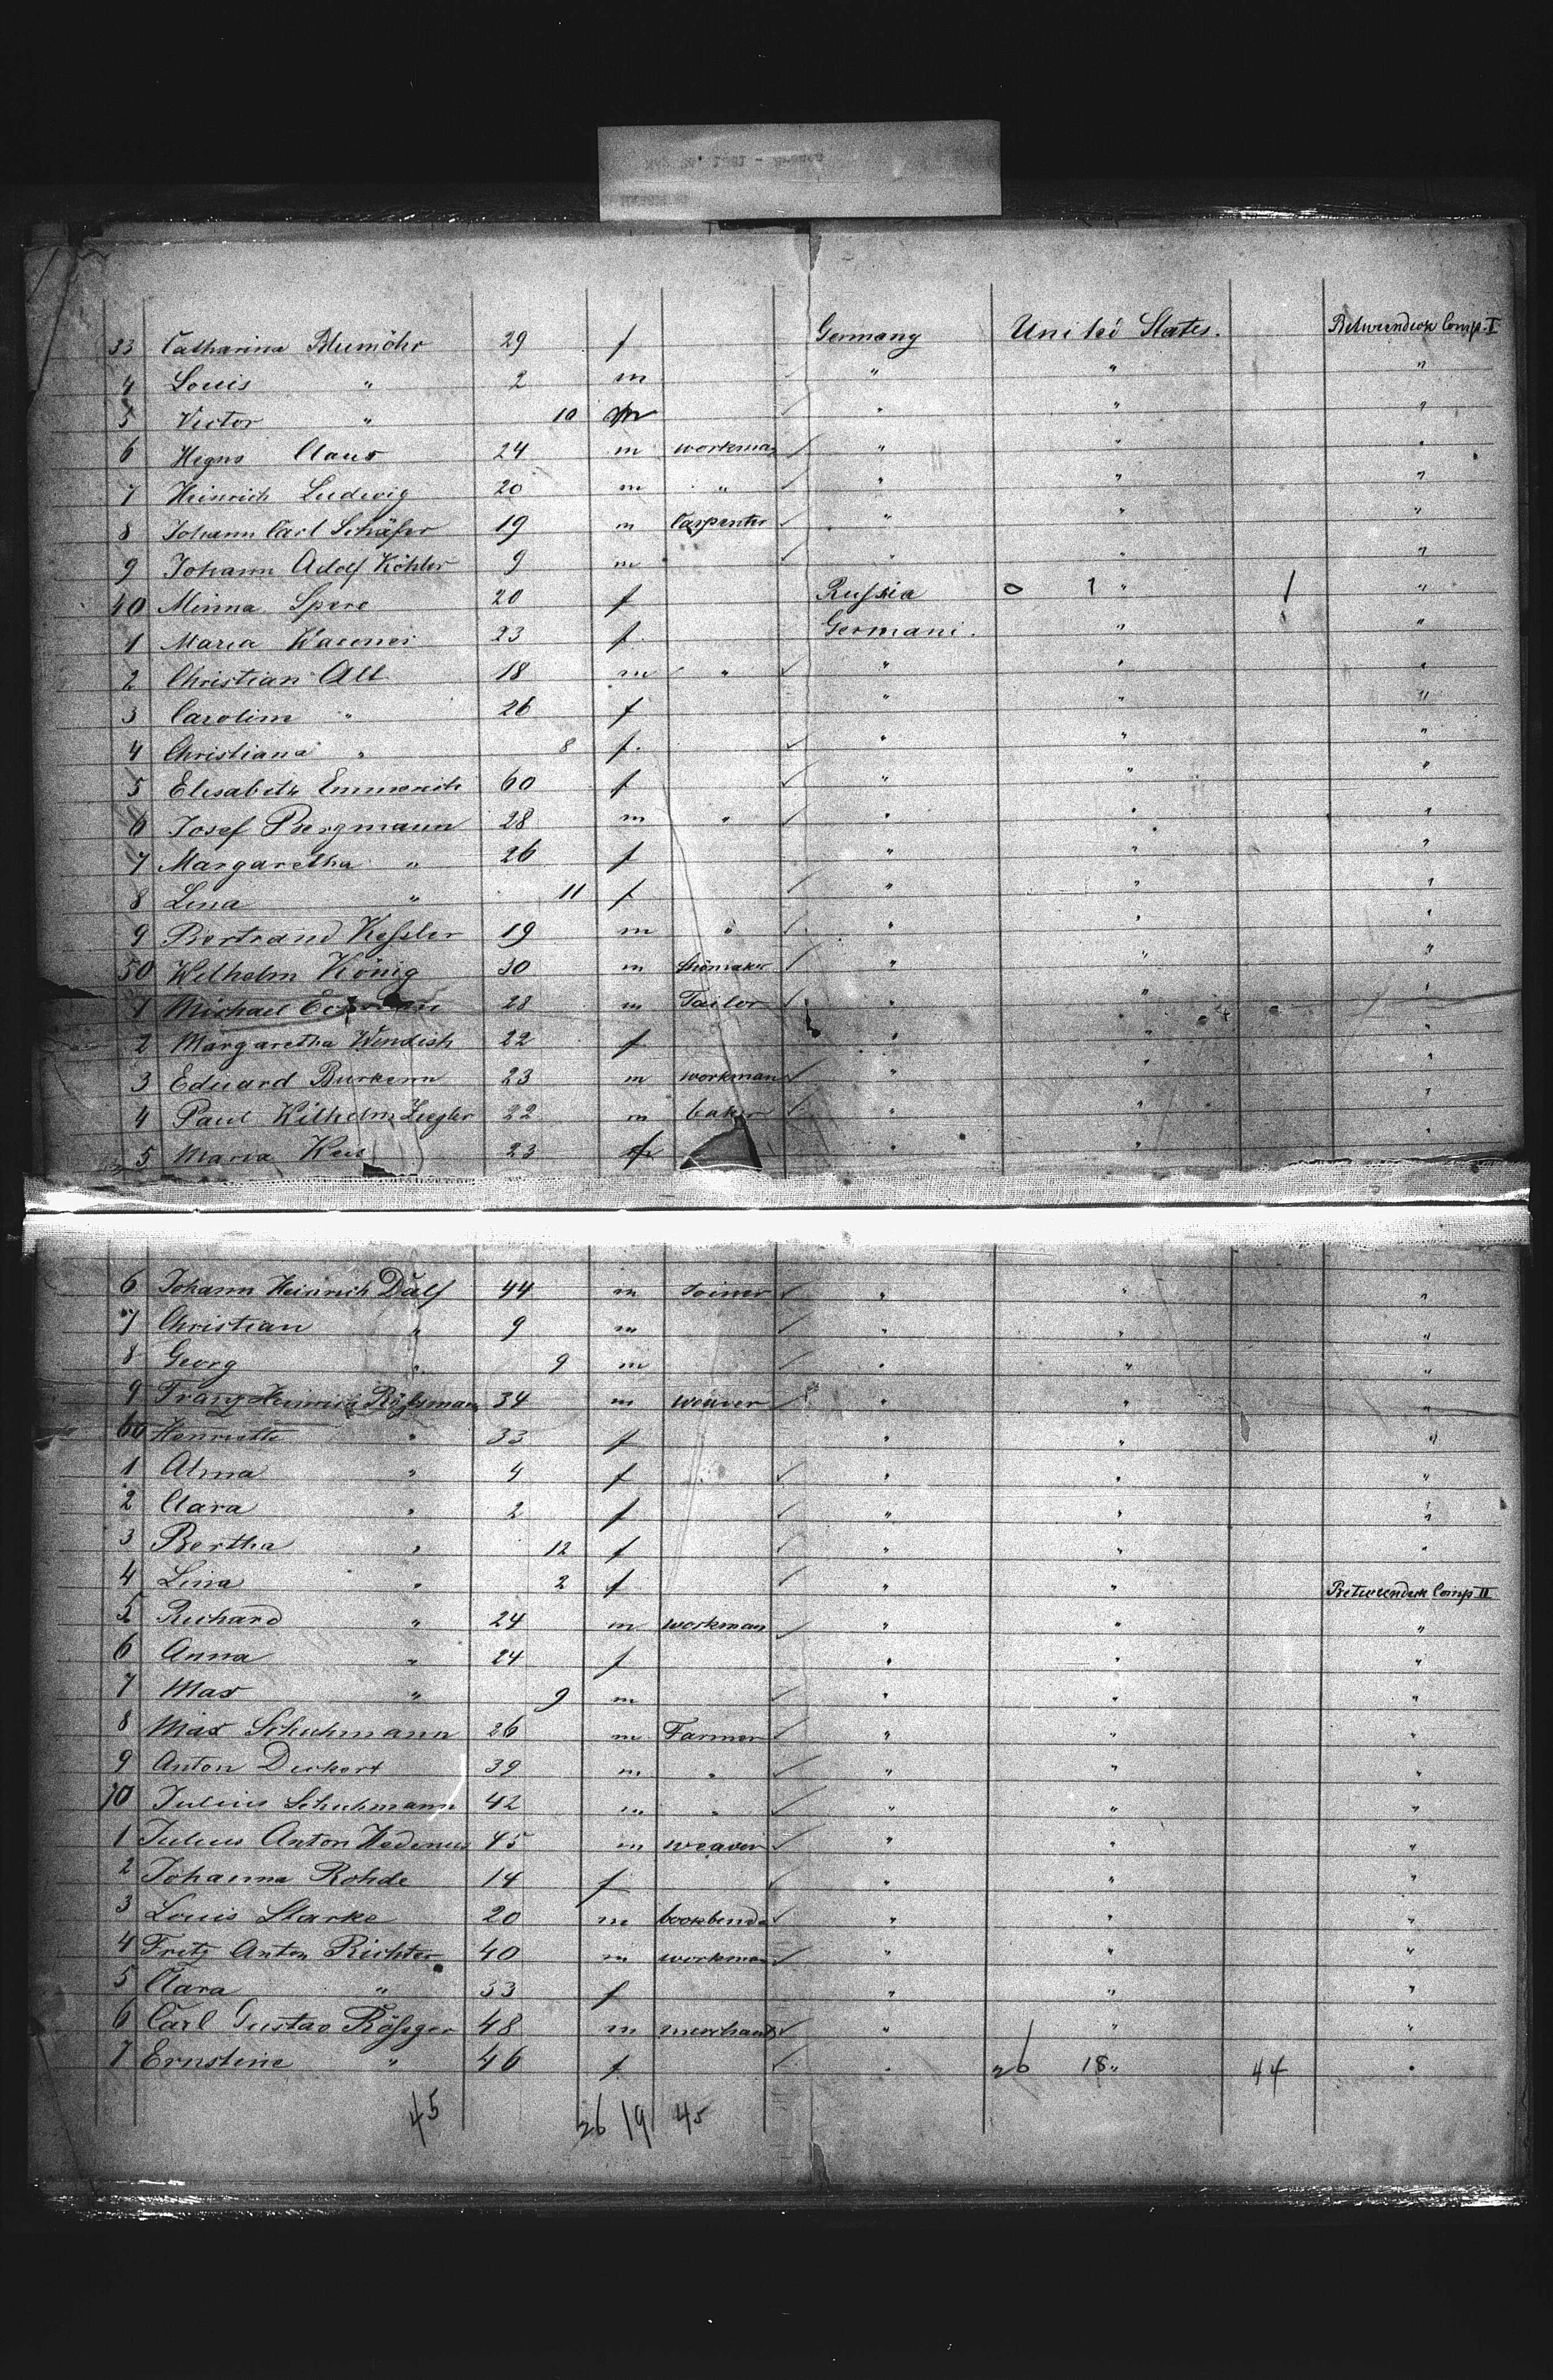 33 Catharina Blumöhr 29 f Germany Unitd States. Betweendeck Comp. I
4 Louis " 2 m " " "
5 Victor " 10 m " " "
6 Claus 24 m workman " " "
7 Heinrich Ludwig 20 m " " " "
8 Johann Carl Schäfer 19 m Carpenter " " "
9 Johann Adolf Köhler 9 m " " "
40 Minna 20 f Russia 0 1 " 1 "
1 Maria 23 f Germani. " "
2 Christian Alt 18 m " " " "
3 Carolim " 26 f " " "
4 Christiana " 8 f. " " "
5 Elisabeth Emmerich 60 f " " "
6 Josef Bergmann 28 m " " " "
7 Margaretha " 26 f " " "
8 Lina " 11 f " " "
9 Bertrand Kessler 19 m " " " "
50 Wilhelm König 30 m Shomaker " " "
1 Michael 28 m Tailor " " "
2 Margaretha Windish 22 f " " "
3 Eduard 23 m workman " " "
4 Paul Wilhelm Ziegler 22 m baker " " "
5 Maria 23 f " " "
6 Johann Heinrich Dülf 44 m Joiner " " "
7 Christian " 9 m " " "
8 Georg " 9 m " " "
9 Franz Heinrich 34 m weaver " " "
60 Henriette " 33 f " " "
1 Alma " 4 f " " "
2 Clara " 2 f " " "
3 Bertha " 12 f " " "
4 Lina " 2 f " " Betweendeck Comp II
5 Richard " 24 m workman " " "
6 Anna " 24 f " " "
7 Max " 9 m " " "
8 Max Schuhmann 26 m Farmer " " "
9 Anton Deckert 39 m " " " "
70 Julius Schuhmann 42 m " " " "
1 Julius Anton 45 m weaver " " "
2 Johanna Rohde 14 f " " "
3 Louis Starke 20 m bookbinder " " "
4 Fritz Anton Richter 40 m workman " " "
5 Clara " 33 f " " "
6 Carl Gustav Rößger 48 m merchant " " "
7 Ernstine " 46 f " 26 18 " 44 "
45 26 19 45